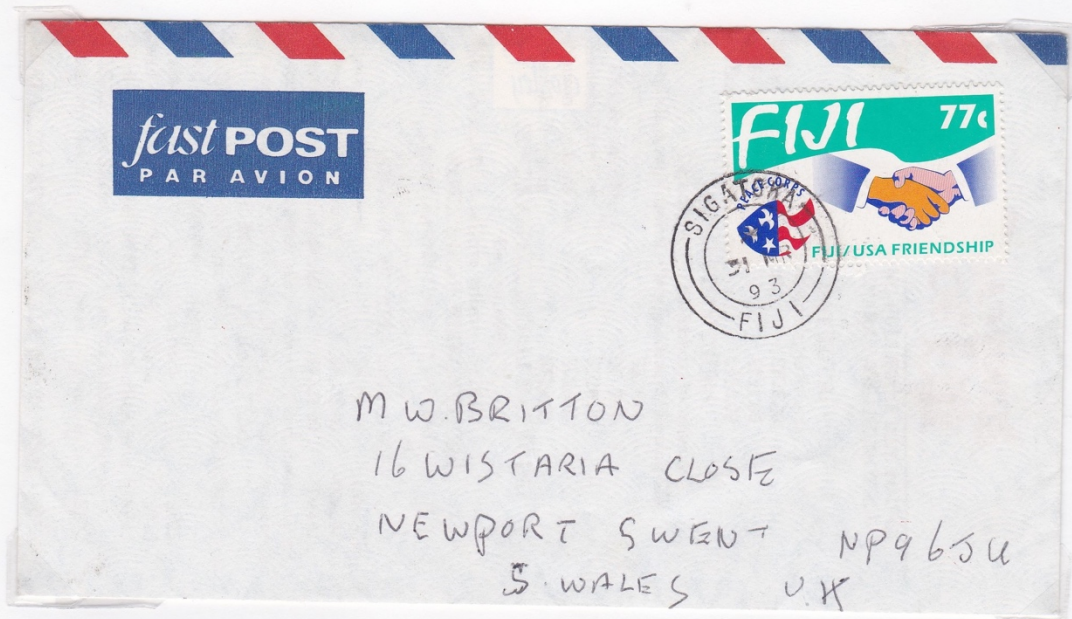 fast POST
PAR AVION
FIJI 77c
PEACE CORPS
FIJI/USA FRIENDSHIP
SIGATOKA
31 MR
93
FIJI
M W. BRITTON
16 WISTARIA CLOSE
NEWPORT GWENT NP9 6JU
S. WALES U.K